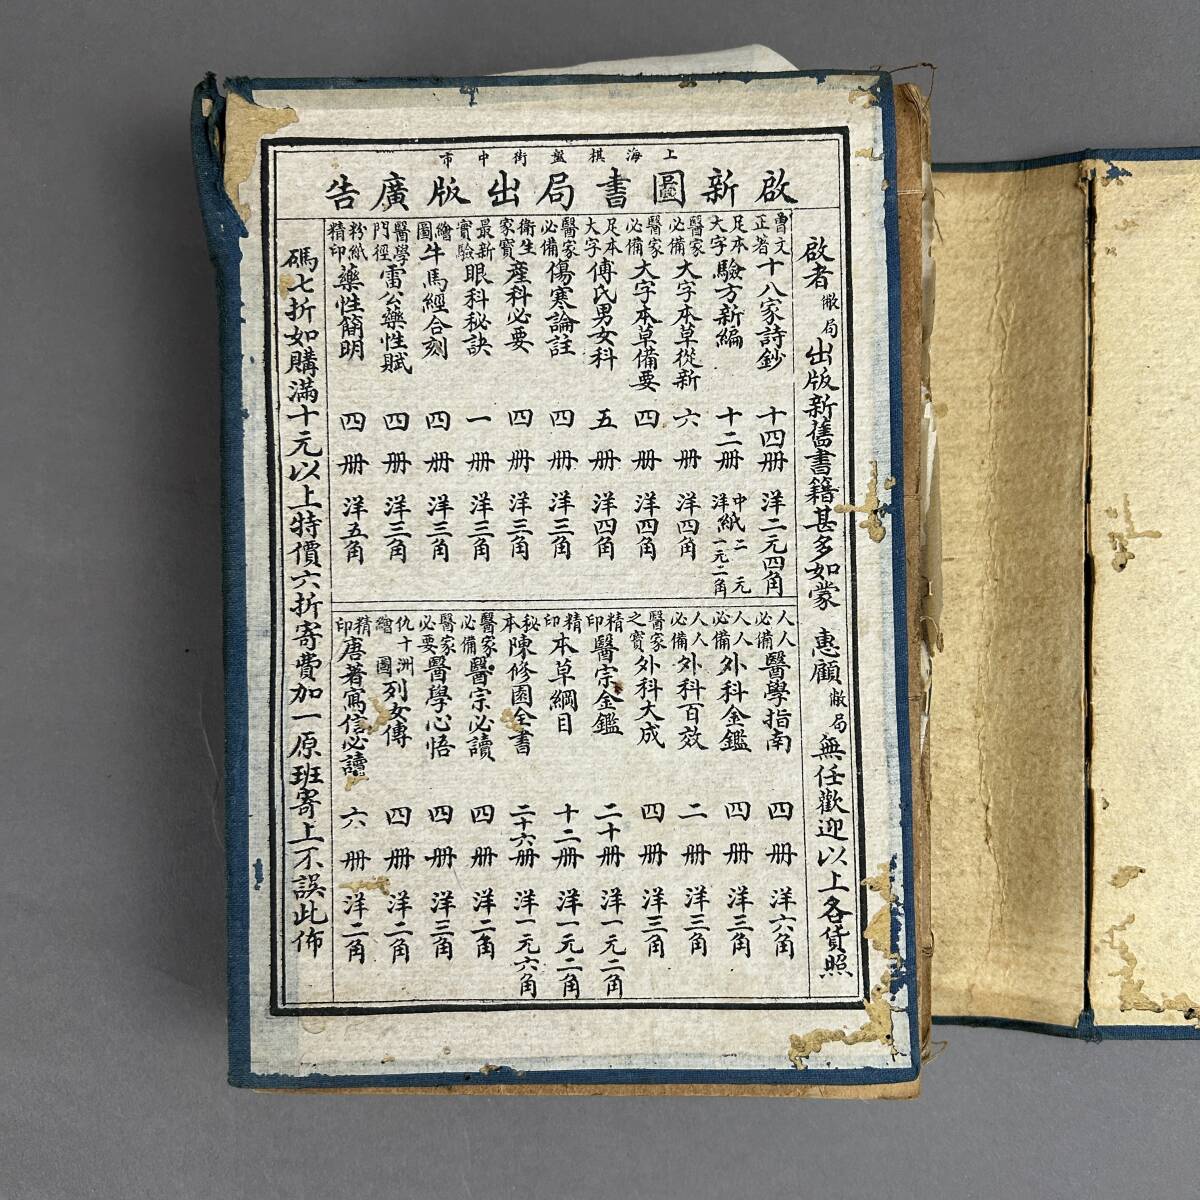 上海棋盤街中市
啟新圖書局出版廣告
啟者敝局出版新舊書籍甚多如蒙 惠顧敝局無任歡迎以上各貨照
曾文正著十八家詩鈔 十四册 洋二元四角
足本大字驗方新編 十二册 中紙二元 洋紙一元二角
醫家必備大字本草從新 六册 洋四角
醫家必備大字本草備要 四册 洋四角
足本大字傅氏男女科 五册 洋四角
醫家必備傷寒論註 四册 洋三角
衛生家寳產科必要 四册 洋三角
最新實驗眼科秘訣 一册 洋三角
繪圖牛馬經合刻 四册 洋三角
醫學門徑雷公藥性賦 四册 洋三角
粉紙精印藥性簡明 四册 洋五角
人人必備醫學指南 四册 洋六角
人人必備外科金鑑 四册 洋三角
人人必備外科百效 二册 洋三角
醫家之寳外科大成 四册 洋三角
精印醫宗金鑑 二十册 洋一元二角
精印本草綱目 十二册 洋一元二角
秘本陳修園全書 二十六册 洋一元六角
醫家必備醫宗必讀 四册 洋二角
醫家必要醫學心悟 四册 洋三角
仇十洲繪圖列女傳 四册 洋二角
精印唐著寫信必讀 六册 洋二角
碼七折如購滿十元以上特價六折寄費加一原班寄上不誤此佈